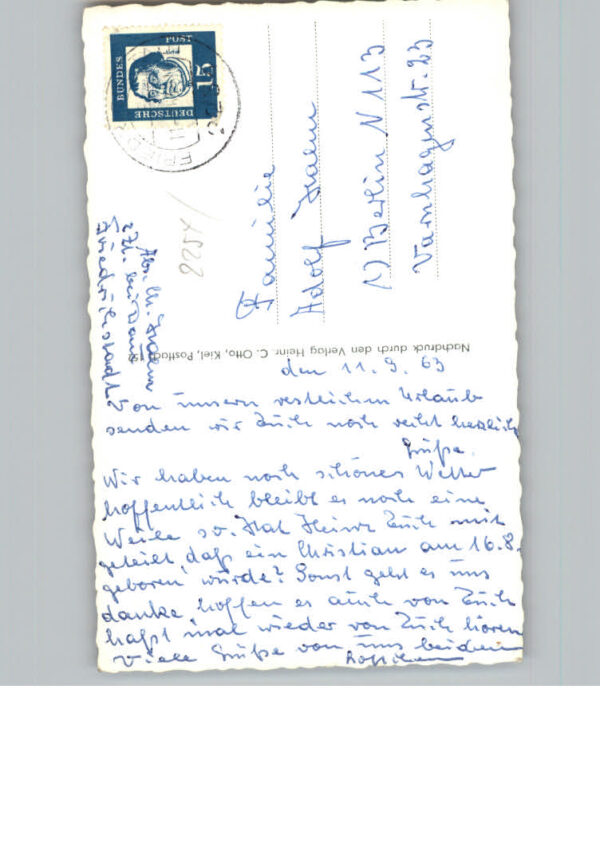 den 11.9.63
Von unsern restlichen Urlaub
senden wir Euch noch recht herzliche
Grüße.
Wir haben noch schönes Wetter
hoffentlich bleibt es noch eine
Weile so. Hat Heinz Euch mit
geteilt, daß ein Christian am 16.8.
geboren wurde? Sonst geht es uns
danke, hoffen es auch von Euch
haßt mal wieder von Euch hören
Viele Grüße von uns beiden
Familie
Adolf
1) Berlin N 113
Varnhagenstr. 23
Abs.
z.Zt. bei
Friedrichstadt
2254/
DEUTSCHE
BUNDES
POST
15
Nachdruck durch den Verlag Heinr. C. Otto, Kiel, Postfach